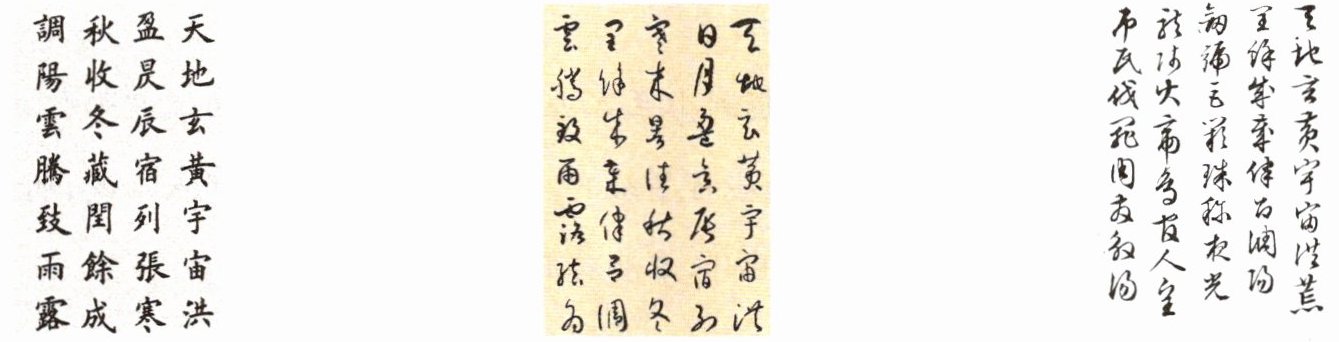 天地玄黃宇宙洪
盈昃辰宿列張寒
秋收冬藏閏餘成
調陽雲騰致雨露
天地玄黃宇宙洪
日月盈昃辰宿列
寒來暑往秋收冬
閏餘成歲律呂調
雲騰致雨露結為
天地玄黃宇宙洪荒
閏餘成歲律呂調陽
劍號巨闕珠稱夜光
龍師火帝鳥官人皇
弔民伐罪周發殷湯